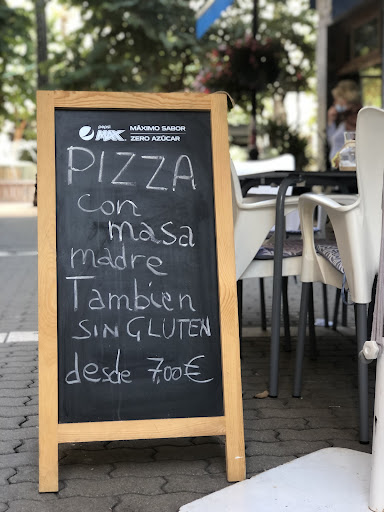 pepsi
MAX
MÁXIMO SABOR
ZERO AZÚCAR
PIZZA
con
masa
madre
Tambien
SIN GLUTEN
desde 7,00€